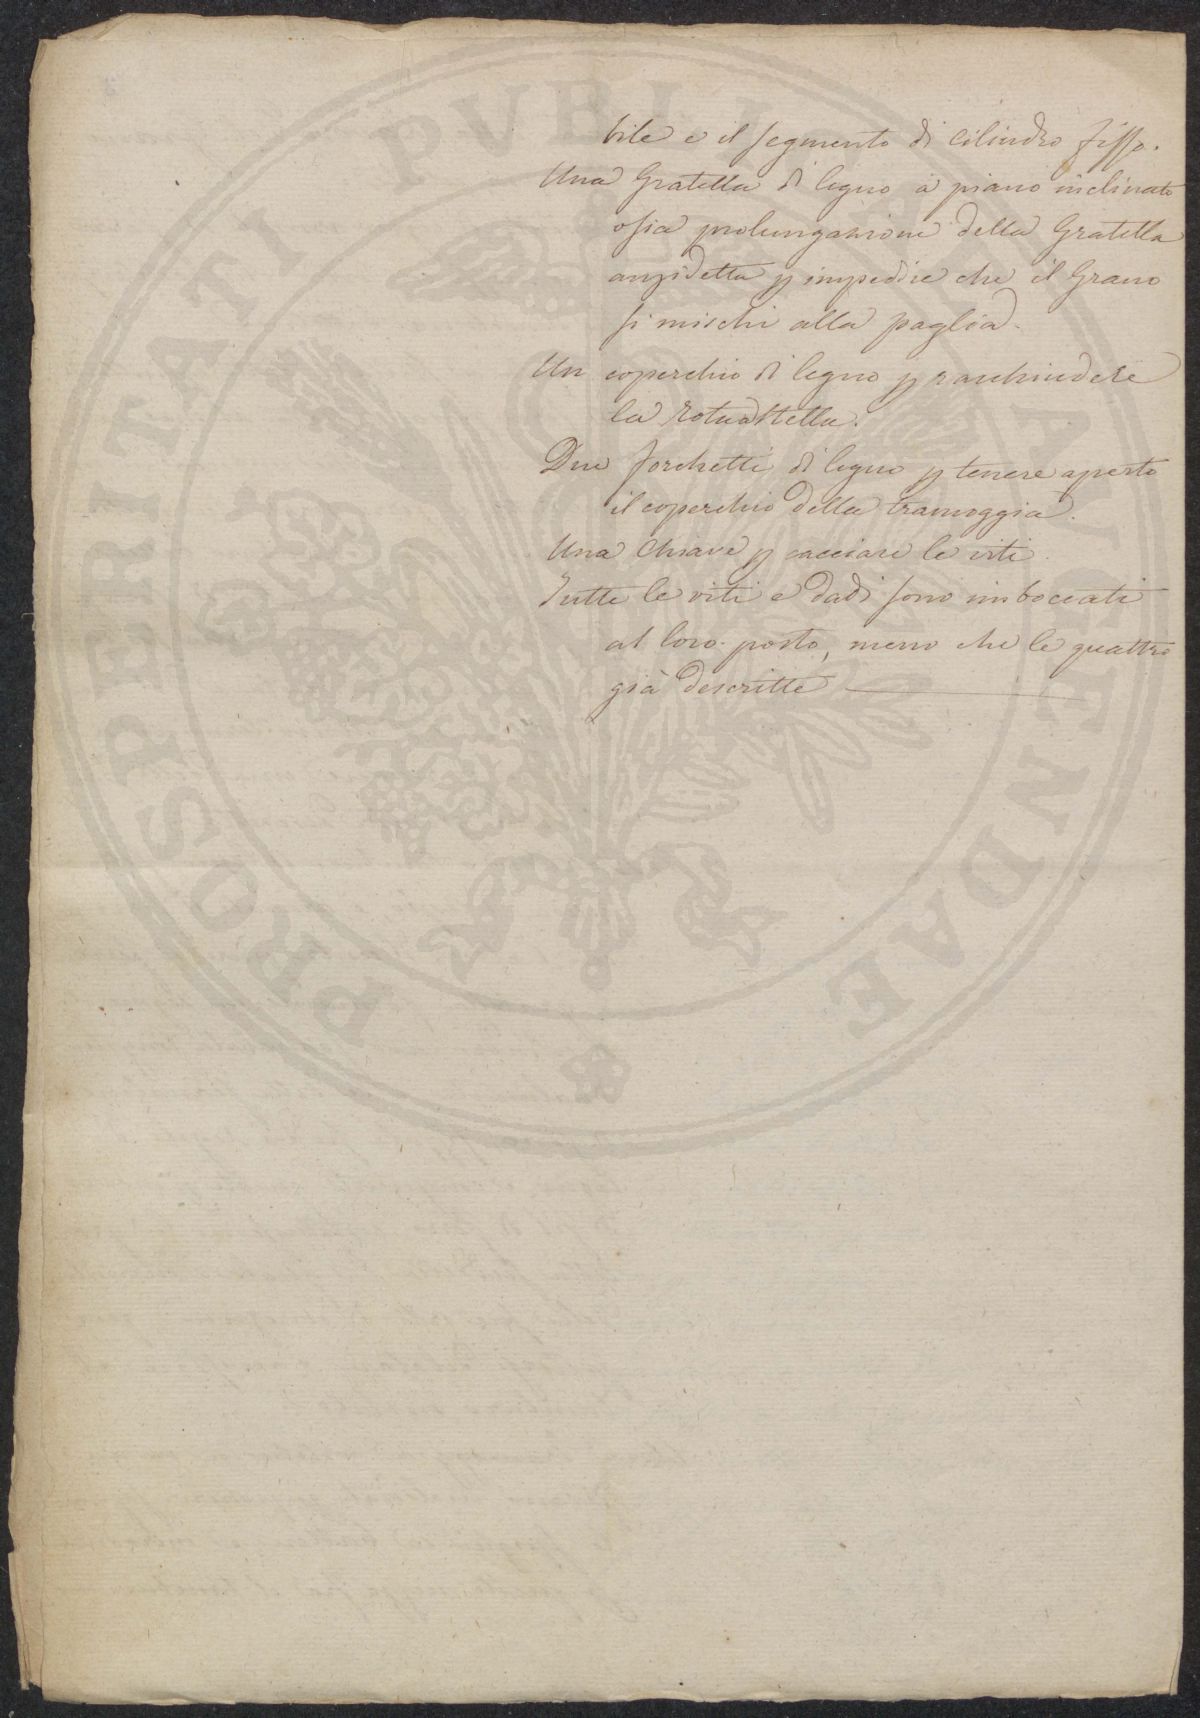 bile e il segmento di cilindro fisso.
Una Gratella di legno a piano inclinato
osia prolungazione della Gratella
anzidetta p impedire che il Grano
si mischi alla paglia.
Un coperchio di legno p racchiudere
la rotastella.
Due forchetti di legno p tenere aperto
il coperchio della tramoggia.
Una Chiave p cacciare le viti
Tutte le viti e dadi sono imboccati
al loro posto, meno che le quattro
già descritte
PROSPERITATI PUBLICAE AUGENDAE